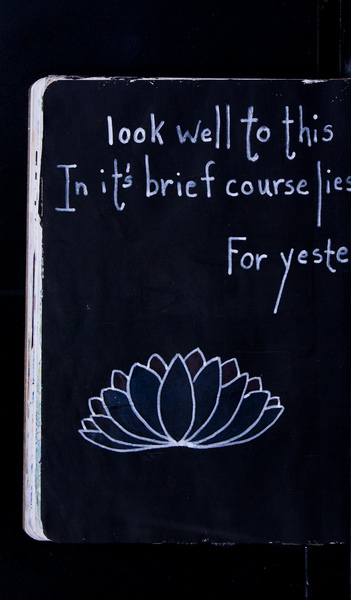 look well to this
In it's brief course lies
For yeste